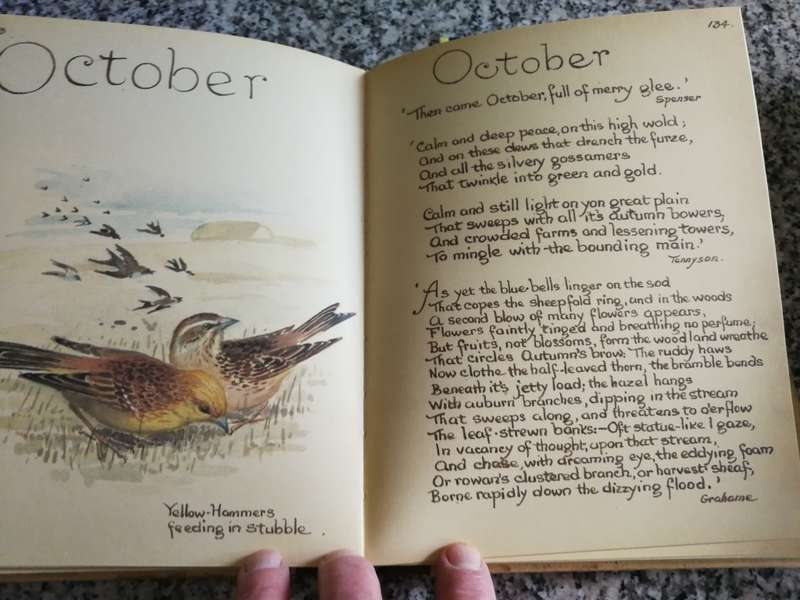 October
Yellow-Hammers
feeding in stubble.
134.
October
'Then came October, full of merry glee.'
Spenser
'Calm and deep peace, on this high wold;
And on these dews that drench the furze,
And all the silvery gossamers
That twinkle into green and gold.
Calm and still light on yon great plain
That sweeps with all it's autumn bowers,
And crowded farms and lessening towers,
To mingle with the bounding main.'
Tennyson.
'As yet the blue-bells linger on the sod
That copes the sheepfold ring, and in the woods
A second blow of many flowers appears,
Flowers faintly tinged and breathing no perfume;
But fruits, not blossoms, form the woodland wreathe
That circles Autumn's brow: The ruddy haws
Now clothe the half-leaved thorn, the bramble bends
Beneath it's jetty load; the hazel hangs
With auburn branches, dipping in the stream
That sweeps along, and threatens to o'erflow
The leaf-strewn banks:—Oft statue-like I gaze,
In vacancy of thought, upon that stream,
And chase, with dreaming eye, the eddying foam
Or rowan's clustered branch, or harvest sheaf,
Borne rapidly down the dizzying flood.'
Grahame